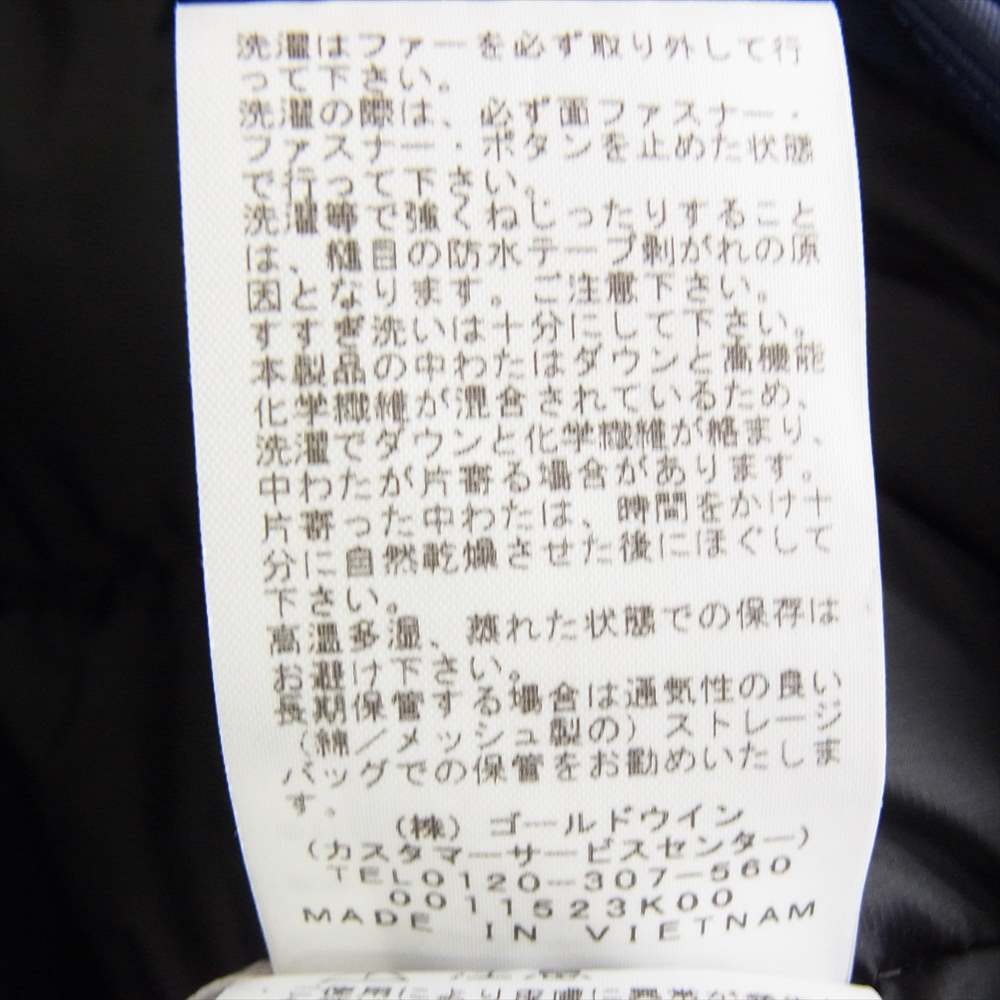 洗濯はファーを必ず取り外して行
って下さい。
洗濯の際は、必ず面ファスナー・
ファスナー・ボタンを止めた状態
で行って下さい。
洗濯等で強くねじったりすること
は、縫目の防水テープ剥がれの原
因となります。ご注意下さい。
すすぎ洗いは十分にして下さい。
本製品の中わたはダウンと高機能
化学繊維が混合されているため、
洗濯でダウンと化学繊維が絡まり、
中わたが片寄る場合があります。
片寄った中わたは、時間をかけ十
分に自然乾燥させた後にほぐして
下さい。
高温多湿、蒸れた状態での保存は
お避け下さい。
長期保管する場合は通気性の良い
(綿/メッシュ製の)ストレージ
バッグでの保管をお勧めいたしま
す。
(株)ゴールドウイン
(カスタマーサービスセンター)
TEL0120-307-560
0011523K00
MADE IN VIETNAM